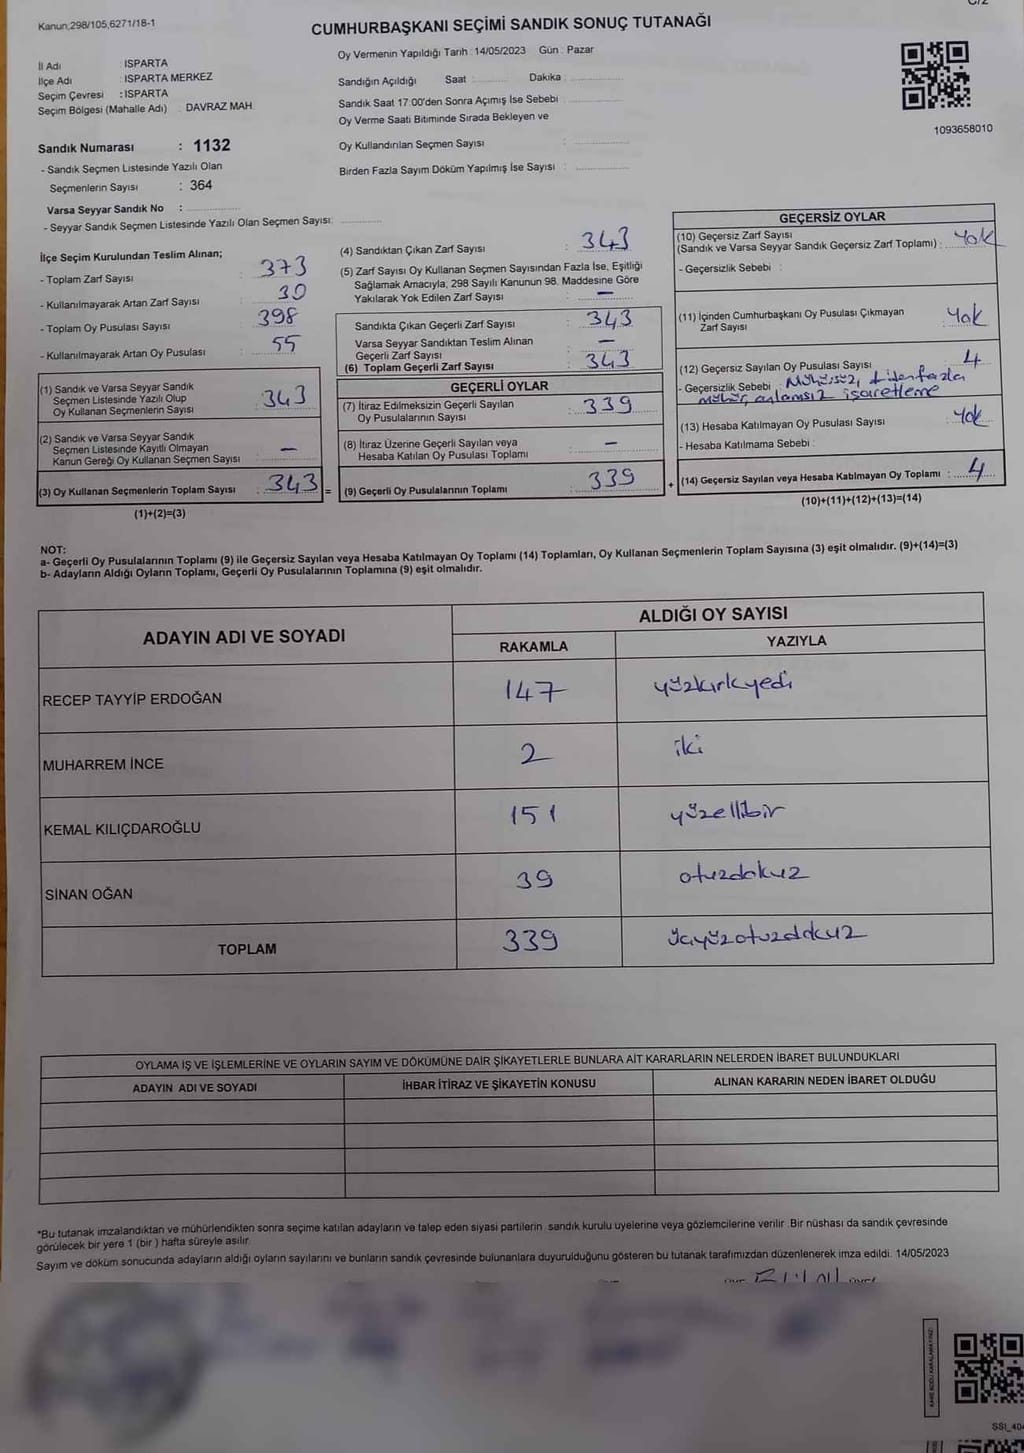 Kanun:298/105,6271/18-1
CUMHURBAŞKANI SEÇİMİ SANDIK SONUÇ TUTANAĞI
Oy Vermenin Yapıldığı Tarih : 14/05/2023 Gün : Pazar
İl Adı : ISPARTA
İlçe Adı : ISPARTA MERKEZ
Seçim Çevresi : ISPARTA
Seçim Bölgesi (Mahalle Adı) : DAVRAZ MAH.
Sandığın Açıldığı Saat Dakika
Sandık Saat 17:00'den Sonra Açımış İse Sebebi
Oy Verme Saati Bitiminde Sırada Bekleyen ve
Oy Kullandırılan Seçmen Sayısı
Birden Fazla Sayım Döküm Yapılmış İse Sayısı
1093658010
Sandık Numarası : 1132
- Sandık Seçmen Listesinde Yazılı Olan
Seçmenlerin Sayısı : 364
Varsa Seyyar Sandık No :
- Seyyar Sandık Seçmen Listesinde Yazılı Olan Seçmen Sayısı:
İlçe Seçim Kurulundan Teslim Alınan;
- Toplam Zarf Sayısı : 373
- Kullanılmayarak Artan Zarf Sayısı : 30
- Toplam Oy Pusulası Sayısı : 398
- Kullanılmayarak Artan Oy Pusulası : 55
(1) Sandık ve Varsa Seyyar Sandık
Seçmen Listesinde Yazılı Olup
Oy Kullanan Seçmenlerin Sayısı : 343
(2) Sandık ve Varsa Seyyar Sandık
Seçmen Listesinde Kayıtlı Olmayan
Kanun Gereği Oy Kullanan Seçmen Sayısı : –
(3) Oy Kullanan Seçmenlerin Toplam Sayısı : 343 =
(1)+(2)=(3)
(4) Sandıktan Çıkan Zarf Sayısı : 343
(5) Zarf Sayısı Oy Kullanan Seçmen Sayısından Fazla İse, Eşitliği
Sağlamak Amacıyla, 298 Sayılı Kanunun 98. Maddesine Göre
Yakılarak Yok Edilen Zarf Sayısı : –
Sandıkta Çıkan Geçerli Zarf Sayısı : 343
Varsa Seyyar Sandıktan Teslim Alınan
Geçerli Zarf Sayısı : –
(6) Toplam Geçerli Zarf Sayısı : 343
GEÇERLİ OYLAR
(7) İtiraz Edilmeksizin Geçerli Sayılan
Oy Pusulalarının Sayısı : 339
(8) İtiraz Üzerine Geçerli Sayılan veya
Hesaba Katılan Oy Pusulası Toplamı : –
(9) Geçerli Oy Pusulalarının Toplamı : 339 +
GEÇERSİZ OYLAR
(10) Geçersiz Zarf Sayısı
(Sandık ve Varsa Seyyar Sandık Geçersiz Zarf Toplamı) : Yok
- Geçersizlik Sebebi :
(11) İçinden Cumhurbaşkanı Oy Pusulası Çıkmayan
Zarf Sayısı : Yok
(12) Geçersiz Sayılan Oy Pusulası Sayısı : 4
- Geçersizlik Sebebi : Mühürsüz, birdenfazla
mühür, anlamsız işaretleme
(13) Hesaba Katılmayan Oy Pusulası Sayısı : Yok
- Hesaba Katılmama Sebebi :
(14) Geçersiz Sayılan veya Hesaba Katılmayan Oy Toplamı : 4
(10)+(11)+(12)+(13)=(14)
NOT:
a- Geçerli Oy Pusulalarının Toplamı (9) ile Geçersiz Sayılan veya Hesaba Katılmayan Oy Toplamı (14) Toplamları, Oy Kullanan Seçmenlerin Toplam Sayısına (3) eşit olmalıdır. (9)+(14)=(3)
b- Adayların Aldığı Oyların Toplamı, Geçerli Oy Pusulalarının Toplamına (9) eşit olmalıdır.
ADAYIN ADI VE SOYADI
ALDIĞI OY SAYISI
RAKAMLA YAZIYLA
RECEP TAYYİP ERDOĞAN 147 yüzkırkyedi
MUHARREM İNCE 2 iki
KEMAL KILIÇDAROĞLU 151 yüzellibir
SİNAN OĞAN 39 otuzdokuz
TOPLAM 339 üçyüzotuzdokuz
OYLAMA İŞ VE İŞLEMLERİNE VE OYLARIN SAYIM VE DÖKÜMÜNE DAİR ŞİKAYETLERLE BUNLARA AİT KARARLARIN NELERDEN İBARET BULUNDUKLARI
ADAYIN ADI VE SOYADI İHBAR İTİRAZ VE ŞİKAYETİN KONUSU ALINAN KARARIN NEDEN İBARET OLDUĞU
*Bu tutanak imzalandıktan ve mühürlendikten sonra seçime katılan adayların ve talep eden siyasi partilerin sandık kurulu üyelerine veya gözlemcilerine verilir. Bir nüshası da sandık çevresinde
görülecek bir yere 1 (bir ) hafta süreyle asılır.
Sayım ve döküm sonucunda adayların aldığı oyların sayılarını ve bunların sandık çevresinde bulunanlara duyurulduğunu gösteren bu tutanak tarafımızdan düzenlenerek imza edildi. 14/05/2023